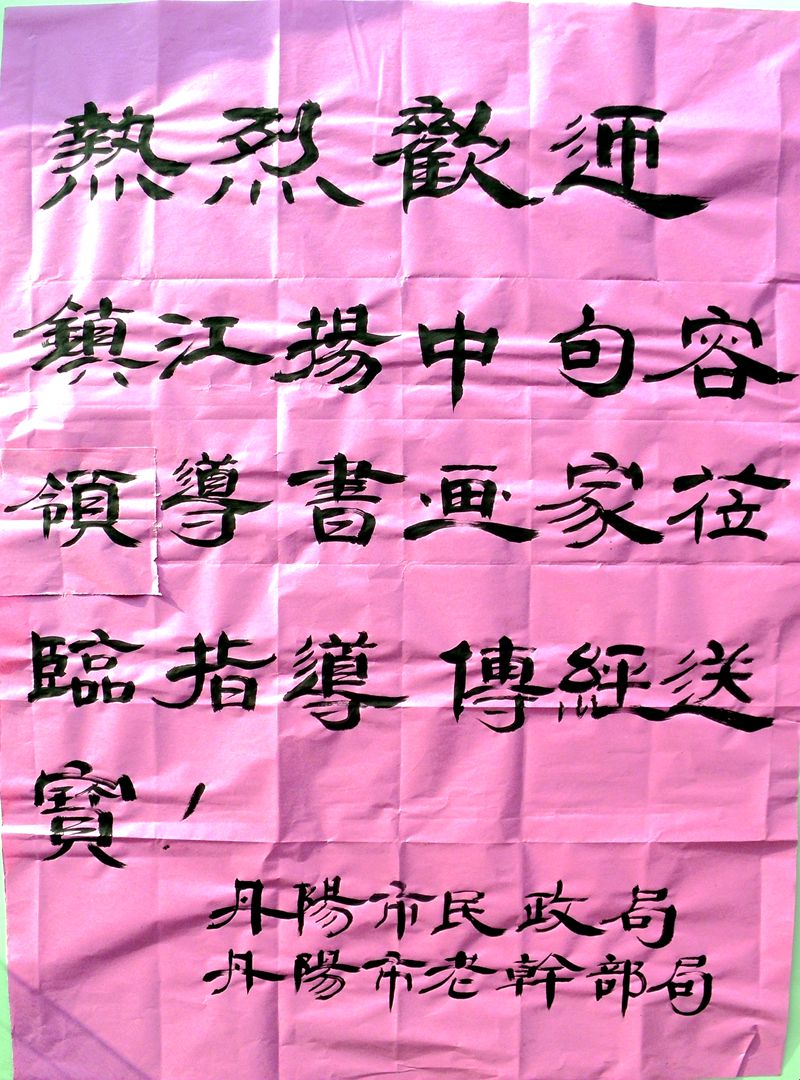 熱烈歡迎
鎮江揚中句容
領導書画家莅
臨指導傳經送
寶！
丹陽市民政局
丹陽市老幹部局